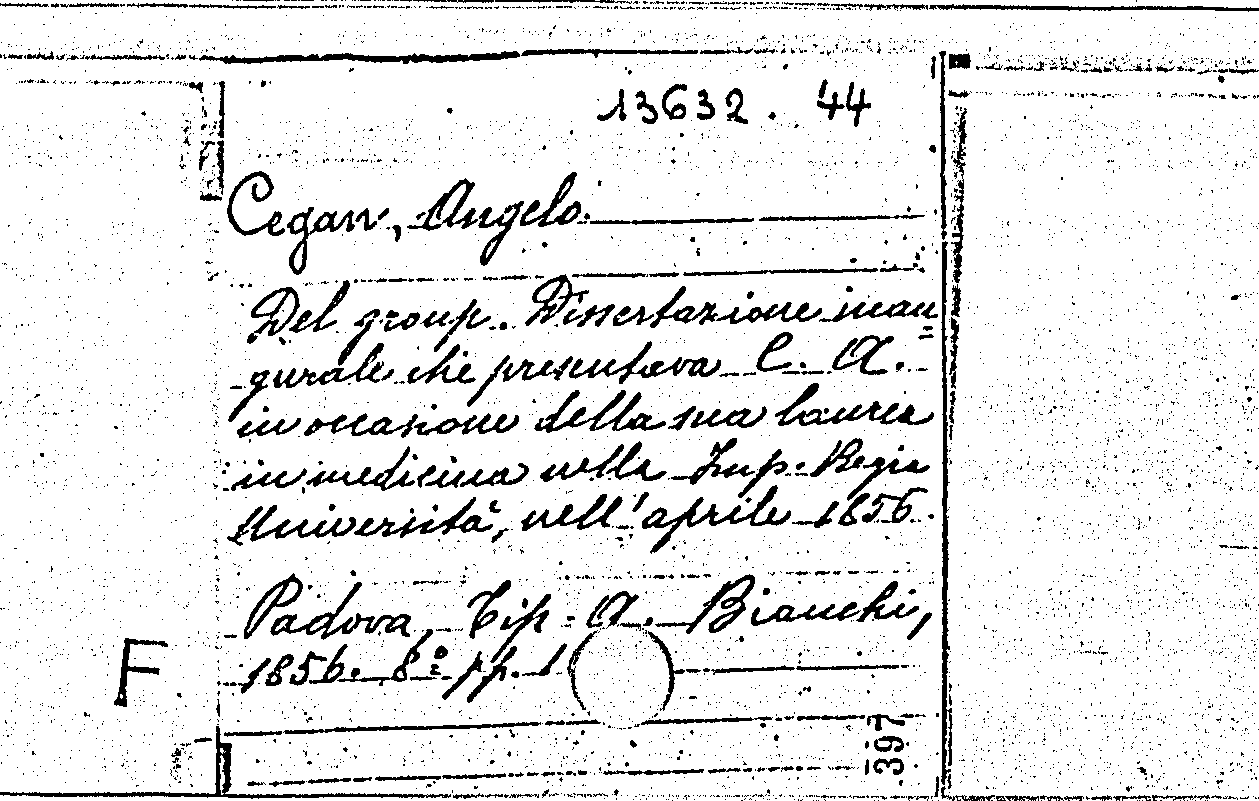 13632. 44
Cegan, Angelo.
Del group. Dissertazione inau=
gurale che presentava C. A.
in occasione della sua laurea
in medicina nella Imp. Regia
Università, nell'aprile 1856.
Padova, Tip. A. Bianchi,
F
1856. 8º pp.
397